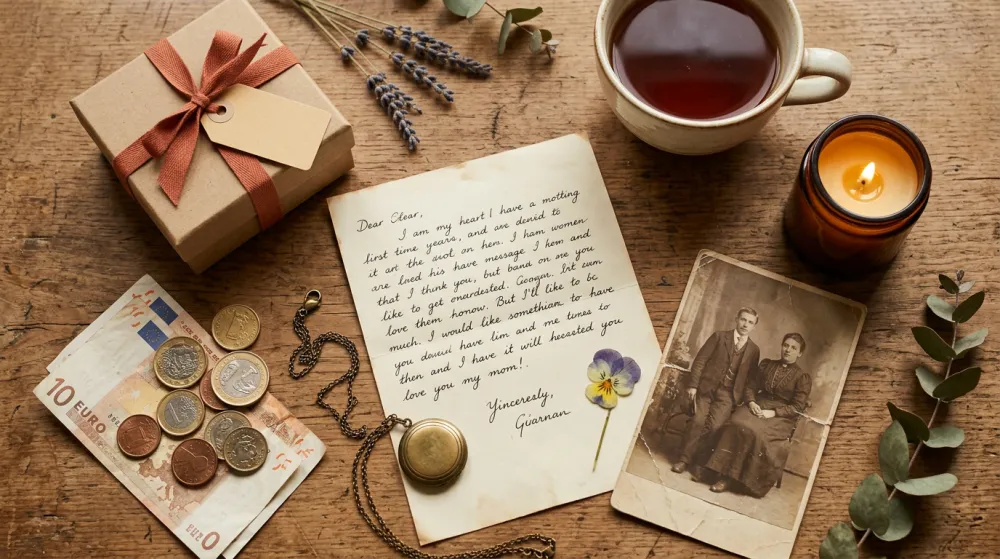 Dear Stear,
I am my heart I have a motting
first time years, and are denied to
it art the avol on hen. I ham women
are laed his have message I hem and
that I think you, but band on are you
like to get oneardested. Googar. Irt cum
love them honow. But I'll like to be
much. I would like somethiam to have
you dowed have lim and me tunes to
then and I have it will heeasted you
love you my mom!.
Yinceresly,
Giarnan
10 EURO
10